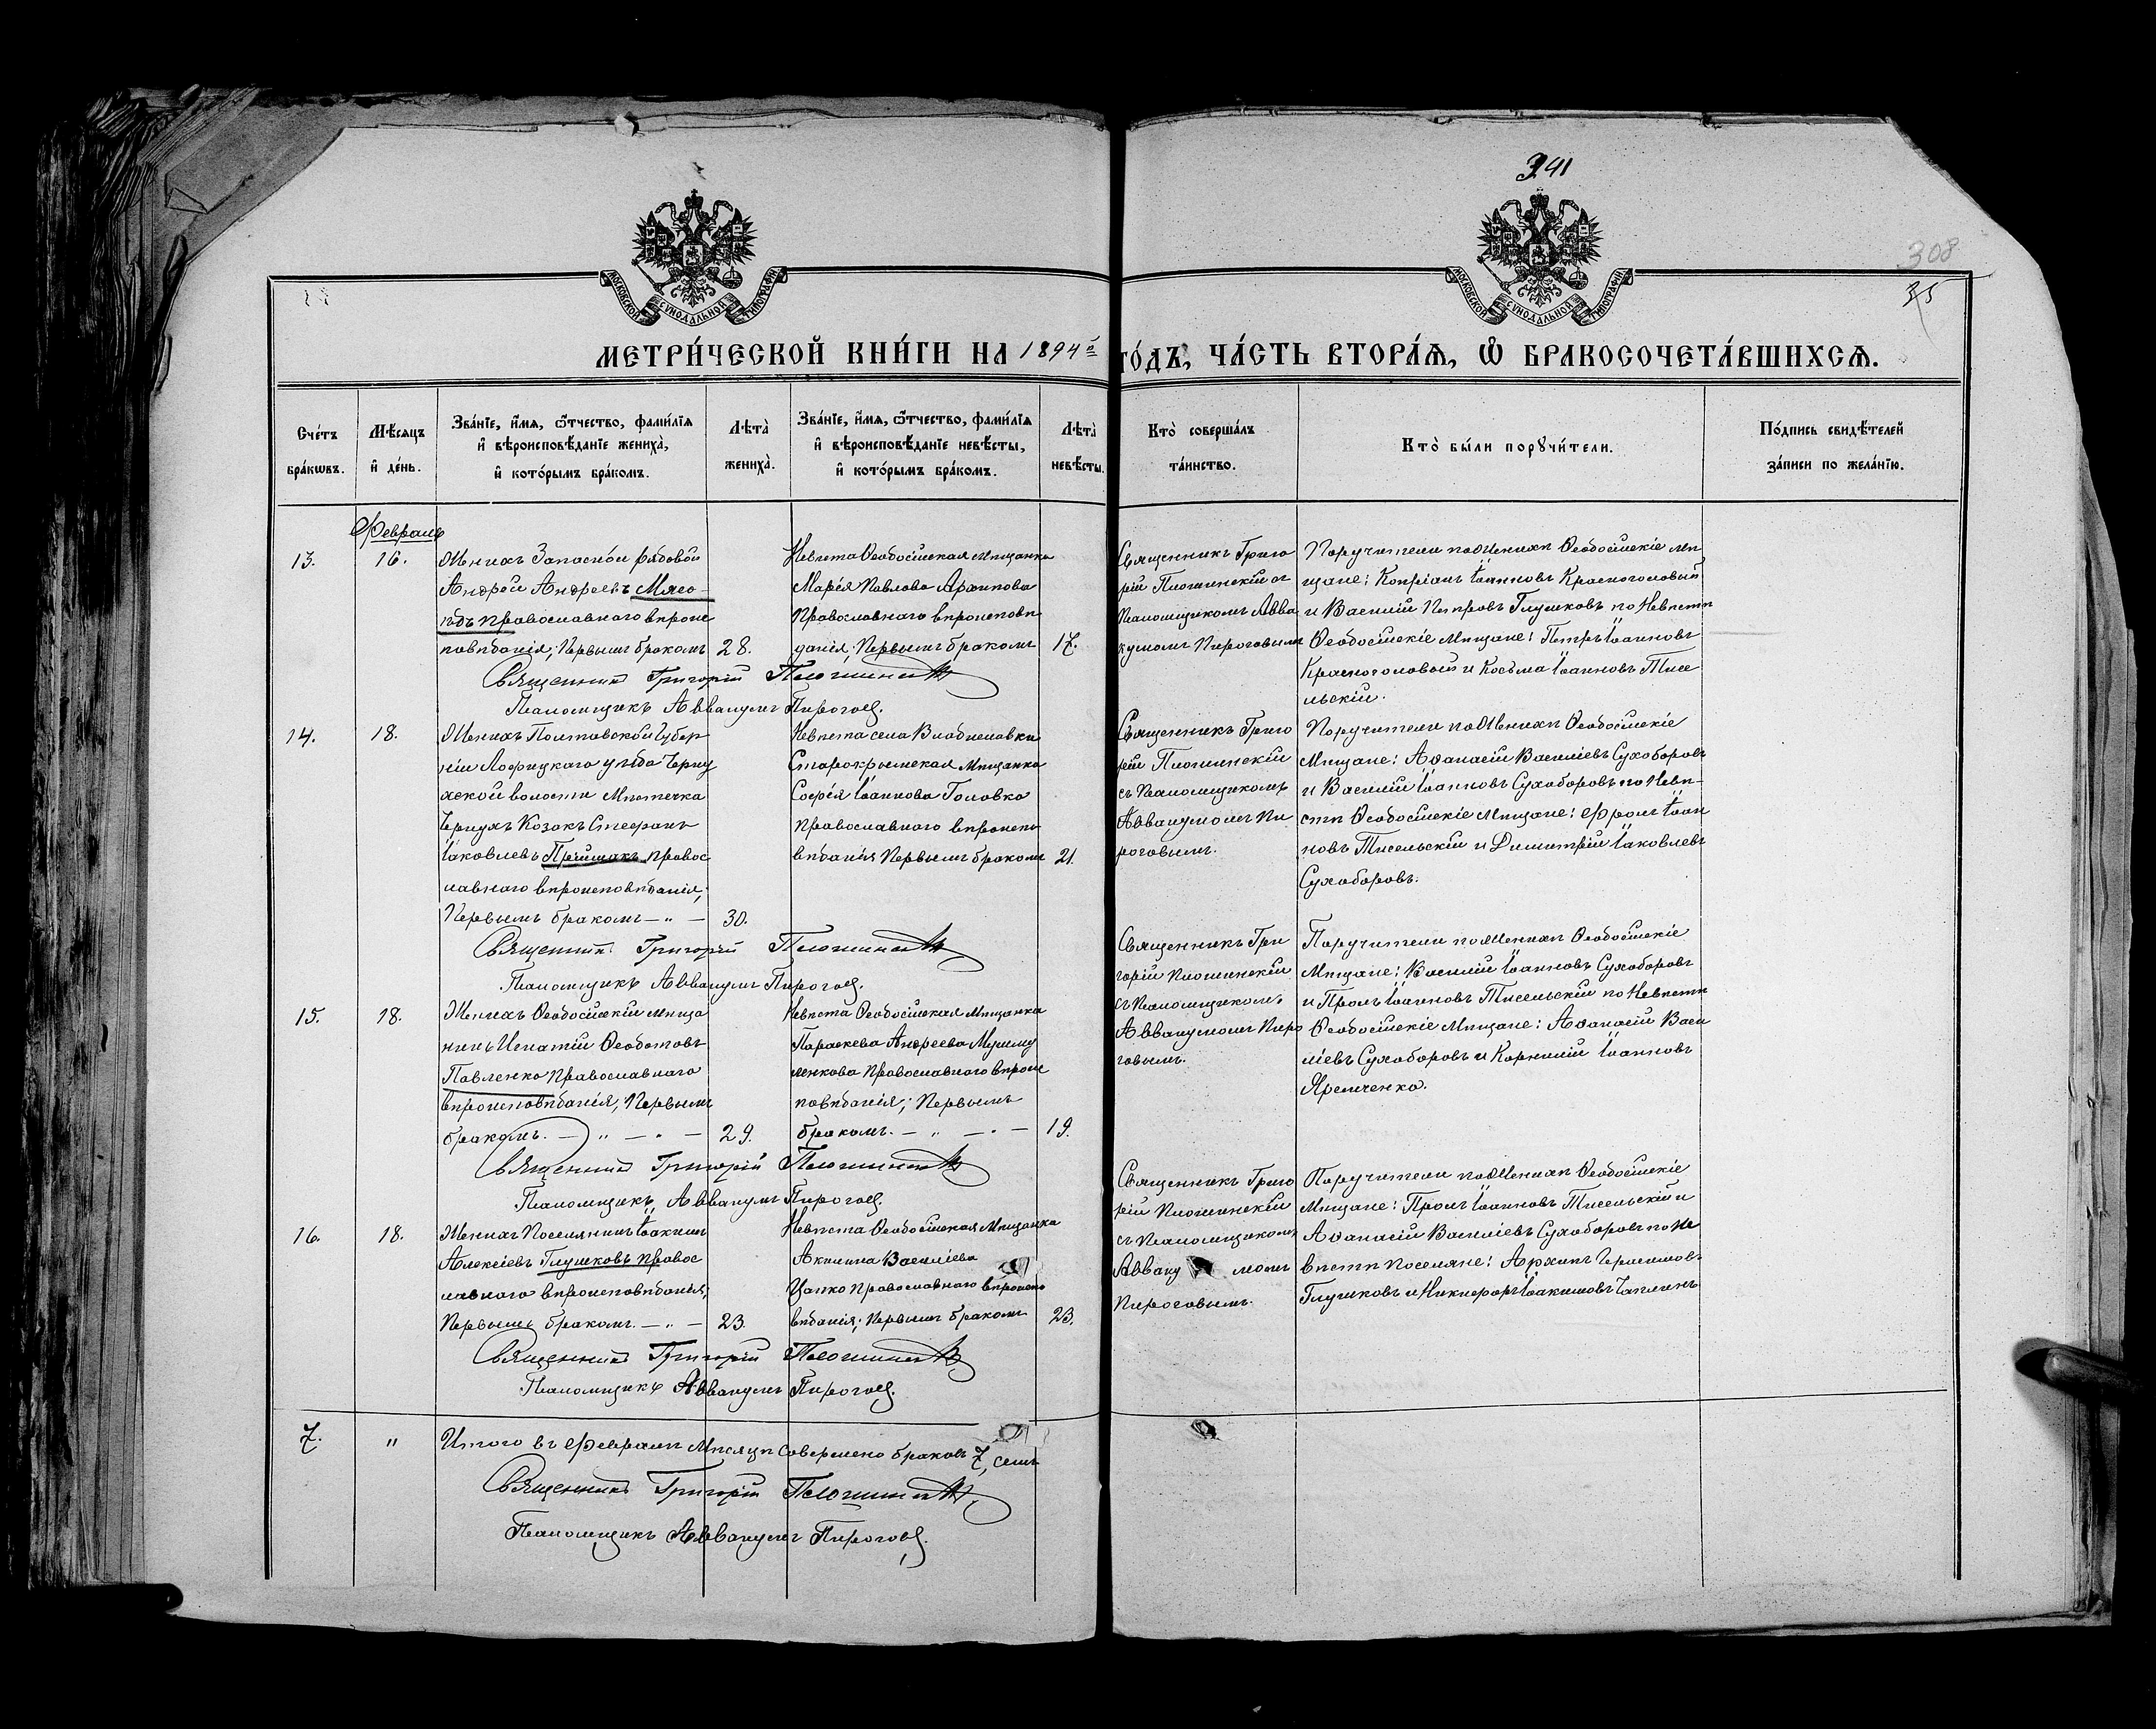 341
308
35
МОСКОВСКОЙ СѴНОДАЛЬНОЙ ТИПОГРАФІИ
МОСКОВСКОЙ СѴНОДАЛЬНОЙ ТИПОГРАФІИ
МЕТРИ́ЧЕСКОЙ КНИ́ГИ НА 1894й
ГО́ДЪ, ЧА́СТЬ ВТОРА́Ѧ, Ѽ БРАКОСОЧЕТА́ВШИХСѦ.
Сче́тъ
бра́кѡвъ.
Мѣ́сѧцъ
и҆ де́нь.
Зва́нїе, и҆́мѧ, ѻ҆́тчество, фами́лїѧ
и҆ вѣроисповѣ́данїе жениха̀,
и҆ кото́рымъ бра́комъ.
Лѣ́та̀
жениха̀.
Зва́нїе, и҆́мѧ, ѻ҆́тчество, фами́лїѧ
и҆ вѣроисповѣ́данїе невѣ́сты,
и҆ кото́рымъ бра́комъ.
Лѣ́та̀
невѣ́сты.
Кто̀ соверша́лъ
та́инство.
Кто̀ бы́ли порꙋчи́тели.
По́дпись свидѣ́телей
за́писи по жела́нїю.
Февраль
13.
16.
Женихъ Запасной рядовой
Андрей Андреевъ Мясо-
ѣдъ Православнаго вѣроис
повѣданія; Первымъ бракомъ
28.
Невѣста Ѳеодосійская Мѣщанка
Марія Павлова Архипова
Православнаго вѣроисповѣ
данія; Первымъ бракомъ
17.
Священникъ Григо
рій Плошинскій съ
Псаломщикомъ Авва
кумомъ Пироговымъ
Поручители по Женихѣ Ѳеодосійскіе мѣ
щане: Кипріанъ Іоанновъ Красноголовый
и Василій Петровъ Глушковъ по Невѣстѣ
Ѳеодосійскіе Мѣщане: Петръ Іоанновъ
Красноголовый и Косьма Іоанновъ Тисе
льскій.
Священникъ Григорій Плошинскій
Псаломщикъ Аввакумъ Пироговъ.
14.
18.
Женихъ Полтавской Губер
ніи Лохвицкаго уѣзда Черну
хской волости Мѣстечка
Чернухъ Козакъ Стефанъ
Іаковлевъ Приймакъ Правос
лавнаго вѣроисповѣданія;
Первымъ бракомъ — " —
30.
Невѣста села Владиславки
Старокрымская Мѣщанка
Софія Іоаннова Головко
Православнаго вѣроиспо
вѣданія Первымъ бракомъ
21.
Священникъ Григо
рій Плошинскій
съ Псаломщикомъ
Аввакумомъ Пи
роговымъ.
Поручители по Женихѣ Ѳеодосійскіе
Мѣщане: Аѳанасій Василіевъ Сухоборовъ
и Василій Іоанновъ Сухоборовъ по Невѣ-
стѣ Ѳеодосійскіе Мѣщане: Фролъ Іоан
новъ Тисельскій и Димитрій Іаковлевъ
Сухоборовъ.
Священникъ Григорій Плошинскій
Псаломщикъ Аввакумъ Пироговъ.
15.
18.
Женихъ Ѳеодосійскій мѣща
нинъ Игнатій Ѳеодотовъ
Павленко Православнаго
вѣроисповѣданія, Первымъ
бракомъ. — " — " —
29.
Невѣста Ѳеодосійская Мѣщанка
Параскева Андреева
Православнаго вѣроис
повѣданія; Первымъ
бракомъ. — " — " —
19.
Священникъ Гри
горій Плошинскій
съ Псаломщикомъ
Аввакумомъ Пиро
говымъ.
Поручители по Женихѣ Ѳеодосійскіе
Мѣщане: Василій Іоанновъ Сухоборовъ
и Фролъ Іоанновъ Тисельскій по Невѣстѣ
Ѳеодосійскіе Мѣщане: Аѳанасій Васи
ліевъ Сухоборовъ и Корнилій Іоанновъ
Яремченко.
Священникъ Григорій Плошинскій
Псаломщикъ Аввакумъ Пироговъ.
16.
18.
Женихъ Поселянинъ Іоакимъ
Алексіевъ Глушковъ Правос
лавнаго вѣроисповѣданія;
Первымъ бракомъ. — " —
23.
Невѣста Ѳеодосійская Мѣщанка
Акилина Василіева
Цапко Православнаго вѣроиспо
вѣданія; Первымъ бракомъ
23.
Священникъ Григо
рій Плошинскій
съ Псаломщикомъ
Авваку момъ
Пироговымъ.
Поручители по Женихѣ Ѳеодосійскіе
Мѣщане: Фролъ Іоанновъ Тисельскій и
Аѳанасій Василіевъ Сухоборовъ по Не
вѣстѣ Поселяне: Архипъ Герасимовъ
Глушковъ и Никифоръ Іоакимовъ Чаплинъ
Священникъ Григорій Плошинскій
Псаломщикъ Аввакумъ Пироговъ.
7.
"
Итого въ Февралѣ Мѣсяцѣ Совершено браковъ 7, семь
Священникъ Григорій Плошинскій
Псаломщикъ Аввакумъ Пироговъ.